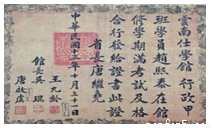 雲南仕學館行政甲
班學員趙熙泰在館
修學期滿考試及格
合行發給證書此證
省長唐繼堯
中華民國十三年十月三十一日
館長吳琨
王九齡
唐啟虞